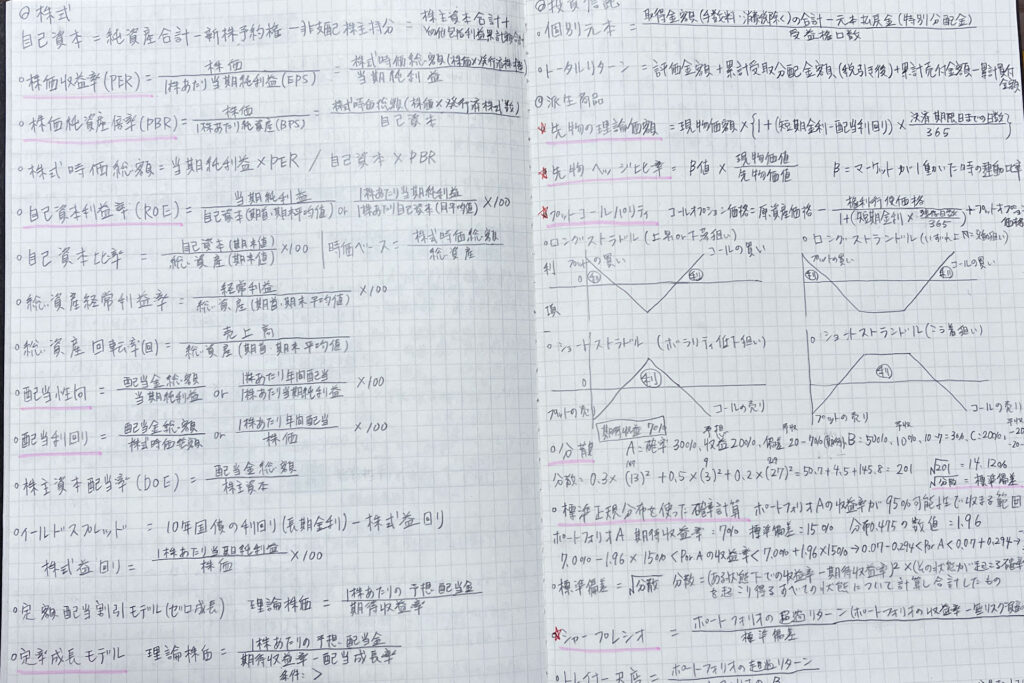 株式
自己資本 = 純資産合計 - 新株予約権 - 非支配株主持分 = 株主資本合計 +
株価収益率 (PER) = 株価 / 1株あたり当期純利益 (EPS) = 株式時価総額 (株価 × 発行済株式数) / 当期純利益
株価純資産倍率 (PBR) = 株価 / 1株あたり純資産 (BPS) = 株式時価総額 (株価 × 発行済株式数) / 自己資本
株式時価総額 = 当期純利益 × PER / 自己資本 × PBR
自己資本利益率 (ROE) = 当期純利益 / 自己資本 (期首・期末平均値) or 1株あたり当期純利益 / 1株あたり自己資本 × 100
自己資本比率 = 自己資本 (期末値) / 総資産 (期末値) × 100 | 時価ベース = 株式時価総額 / 総資産
総資産経常利益率 = 経常利益 / 総資産 (期首・期末平均値) × 100
総資産回転率 (回) = 売上高 / 総資産 (期首・期末平均値)
配当性向 = 配当金総額 / 当期純利益 or 1株あたり年間配当 / 1株あたり当期純利益 × 100
配当利回り = 配当金総額 / 株式時価総額 or 1株あたり年間配当 / 株価 × 100
株主資本配当率 (DOE) = 配当金総額 / 株主資本
イールドスプレッド = 10年国債の利回り (長期金利) - 株式益回り
株式益回り = 1株あたり当期純利益 / 株価 × 100
定額配当割引モデル (ゼロ成長) 理論株価 = 1株あたりの予想配当金 / 期待収益率
定率成長モデル 理論株価 = 1株あたりの予想配当金 / 期待収益率 - 配当成長率
条件: >
投資信託
個別元本 = 取得金額 (手数料・消費税除く) の合計 - 元本払戻金 (特別分配金) / 受益権口数
トータルリターン = 評価金額 + 累計受取分配金額 (税引き後) + 累計売付金額 - 累計買付金額
派生商品
☆先物の理論価額 = 現物価額 × {1 + (短期金利 - 配当利回り) × 決済期限日までの日数 / 365}
☆先物ヘッジ比率 = β値 × 現物価値 / 先物価値 β = マーケットが1動いた時の連動比率
☆プットコールパリティ コールオプション価格 = 原資産価格 - 権利行使価格 / 1 + (短期金利 × 残存日数 / 365) + プットオプション価格
ロングストラドル (上昇or下落狙い)
ロングストラングル
利 プットの買い 利 利 コールの買い
プットの買い 利 コールの買い
0
損
ショートストラドル (ボラリティ低下狙い)
ショートストラングル
0 利
利
プットの売り コールの売り
プットの売り コールの売り
期待収益 7%
分散 A = 確率30%, 収益20%, 偏差 20-7% B: 50%, 10%, 10-7 = 3%, C: 20%, -20
分散 = 0.3 × (13)² + 0.5 × (3)² + 0.2 × (27)² = 50.7 + 4.5 + 145.8 = 201 √201 = 14.1%
√分散 = 標準偏差
標準正規分布を使った確率計算 ポートフォリオAの収益率が95%可能性で収まる範囲
ポートフォリオA 期待収益率 = 7% 標準偏差 = 15% 分布0.475の数値 = 1.96
7.0% - 1.96 × 15% < PorAの収益率 < 7.0% + 1.96 × 15% → 0.07 - 0.294 < PorA < 0.07 + 0.294 →
標準偏差 = √分散 分散 = (ある状態下での収益率 - 期待収益率)² × (その状態が起こる確率
を起こり得るすべての状態について計算し合計したもの
☆シャープレシオ = ポートフォリオの超過リターン (ポートフォリオの収益率 - 無リスク / 標準偏差
トレイナー = ポートフォリオの超過リターン